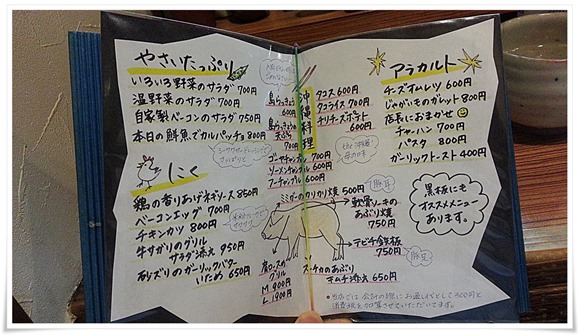 やさいたっぷり
いろいろ野菜のサラダ 700円
温野菜のサラダ 700円
自家製ベーコンのサラダ 750円
本日の鮮魚でカルパッチョ 800円
にく
鶏の香りあげネギソース 850円
ベーコンエッグ 700円
チキンカツ 800円
牛サガリのグリル
サラダ添え 950円
砂ズリのガーリックバター
いため 650円
沖縄料理
島らっきょう
600円
島らっきょう
天ぷら
700円
ゴーヤチャンプルー 700円
ソーメンチャンプルー 600円
フーチャンプルー 600円
タコス 600円
タコライス 700円
チリチーズポテト
600円
ミミガーのカリカリ焼 500円
豚耳
軟骨ソーキの
あぶり焼
750円
テビチ鉄板
750円
豚足
肩ロースの
グリル
M 900円
L 1900円
スーチカのあぶり
キムチ添え 650円
アラカルト
チーズオムレツ 600円
じゃがいものガレット 800円
店長におまかせ
チャーハン 700円
パスタ 800円
ガーリックトースト 400円
黒板にも
オススメメニュー
あります。
当店では会計の際にお通し代として300円と
消費税を加算させていただいてます。